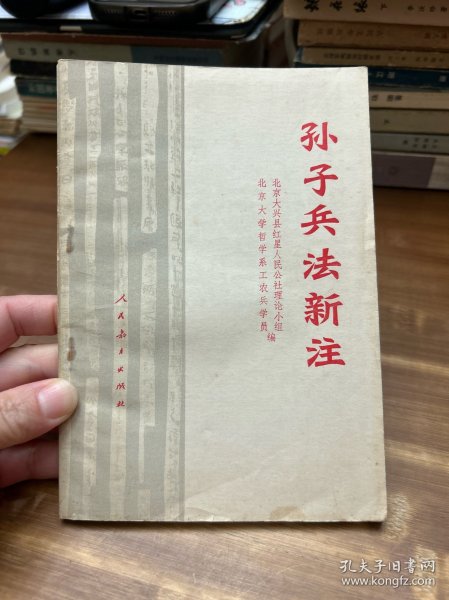 孙子兵法新注
北京大兴县红星人民公社理论小组
北京大学哲学系工农兵学员
编
人民教育出版社
孔夫子旧书网
www.kongfz.com